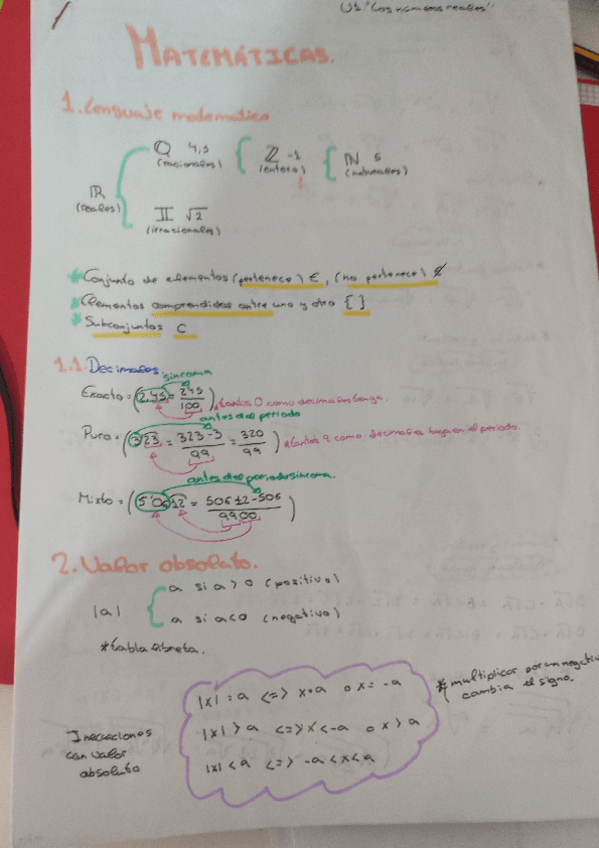 U1 "Los números reales"
MATEMÁTICAS.
1. Lenguaje matemático
ℝ (reales) { ℚ 4,5 (racionales) { ℤ -1 (entero) { ℕ 5 (naturales)
𝕀 √2 (irracionales)
* Conjunto de elementos (pertenece) ∈, (no pertenece) ∉
* Elementos comprendidos entre uno y otro { }
* Subconjuntos ⊂
1.1. Decimales.
sin coma
Exacto = (2,45 = 245/100) * tantos 0 como decimales tenga.
antes del periodo
Puro = (3,23 = 323-3/99 = 320/99) * tantos 9 como decimales haya en el periodo.
antes del periodo sin coma.
Mixto = (5'0612 = 50612-506/9900)
2. Valor absoluto.
|a| { a si a>0 (positivo)
a si a<0 (negativo)
* tabla libreta.
* multiplicar por un negativo cambia el signo.
Inecuaciones con valor absoluto
|x| = a <=> x=a o x= -a
|x| > a <=> x < -a o x > a
|x| < a <=> -a < x < a